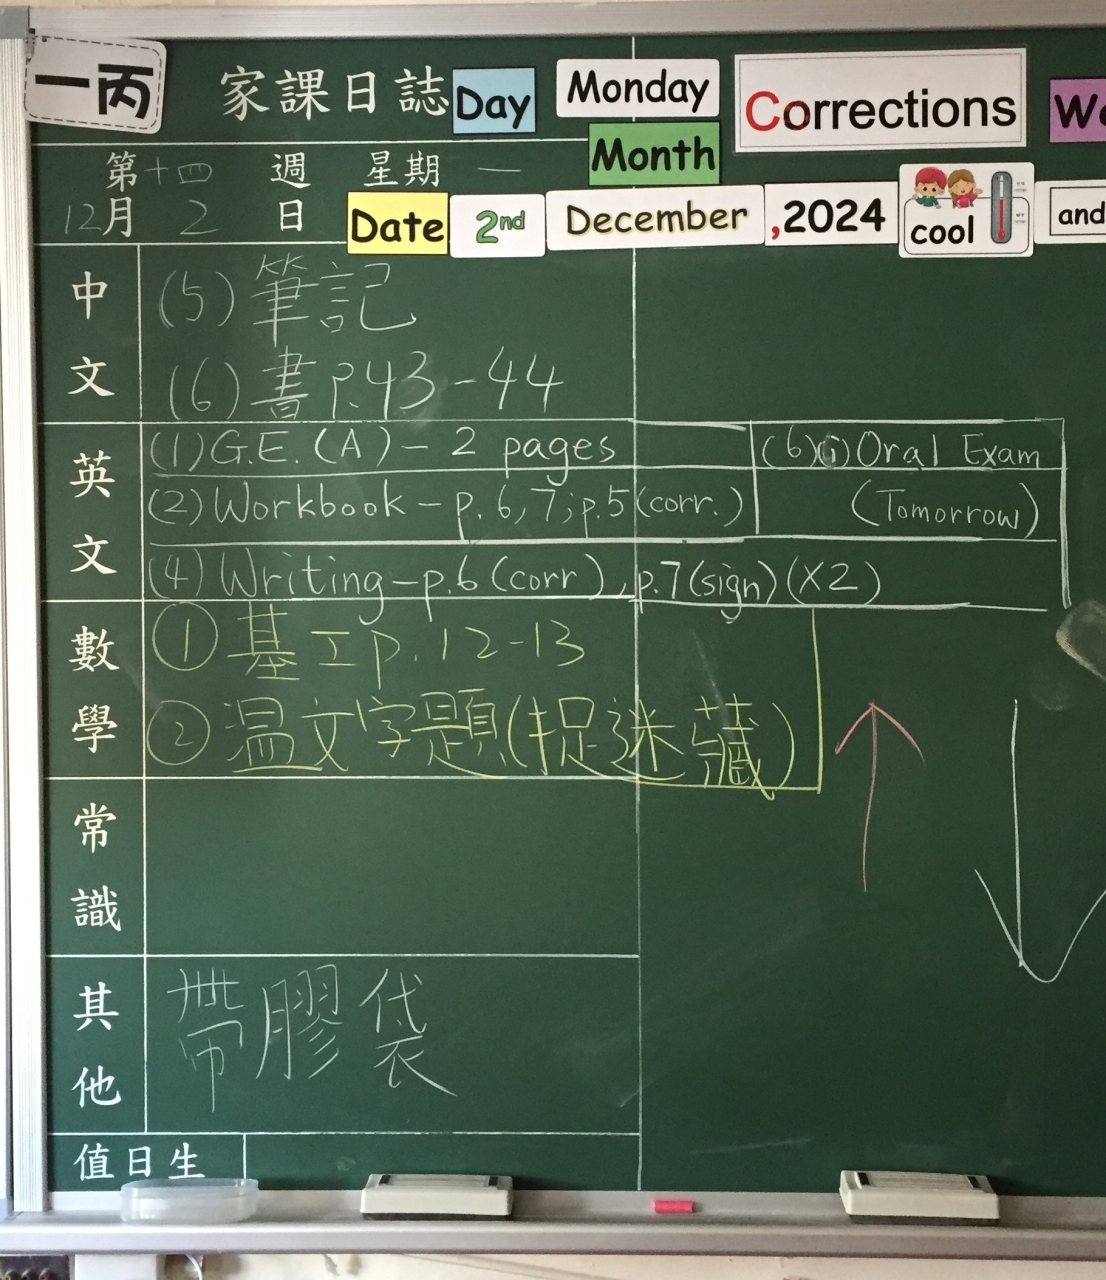 一丙
家課日誌 Day Monday Corrections
Month
第十四週 星期一
12月2日 Date 2nd December ,2024 cool and
中文
(5) 筆記
(6) 書 P.43-44
英文
(1) G.E. (A) - 2 pages
(2) Workbook - p.6,7; p.5 (corr.)
(4) Writing - p.6 (corr), p.7 (sign) (X2)
(6) (i) Oral Exam
(Tomorrow)
數學
① 基工 p.12-13
② 温文字題(捉迷藏)
常識
其他
帶膠袋
值日生